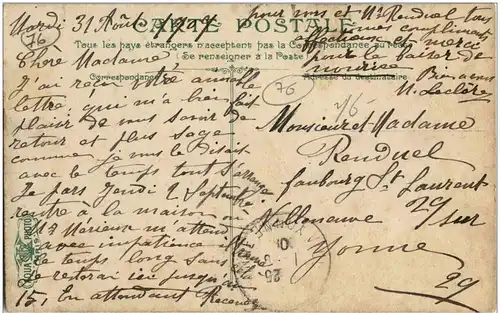 Mardi 31 Août
76
CARTE POSTALE
Tous les pays étrangers n'acceptent pas la Correspondance au recto
(Se renseigner à la Poste)
Correspondance
Adresse du destinataire
Chère Madame
J'ai reçu votre aimable
lettre, qui m'a bien fait
plaisir de vous savoir de
retour et plus sage
comme je vous le disait
avec le temps tout s'arrange
Je pars Jeudi 2 Septembre
rentre à la maison ou
Mr Mérieux m'attend
avec impatience
le temps long sans
Je resterai ici jusqu'au
15, En attendant Recevez
pour vous et Mr Renduel tous
compliments
affectueux et merci
pour le baiser de
Bien à vous
M. Leclère
76
76
Monsieur et Madame
Renduel
faubourg St Laurent
29
Villeneuve sur
Yonne
29